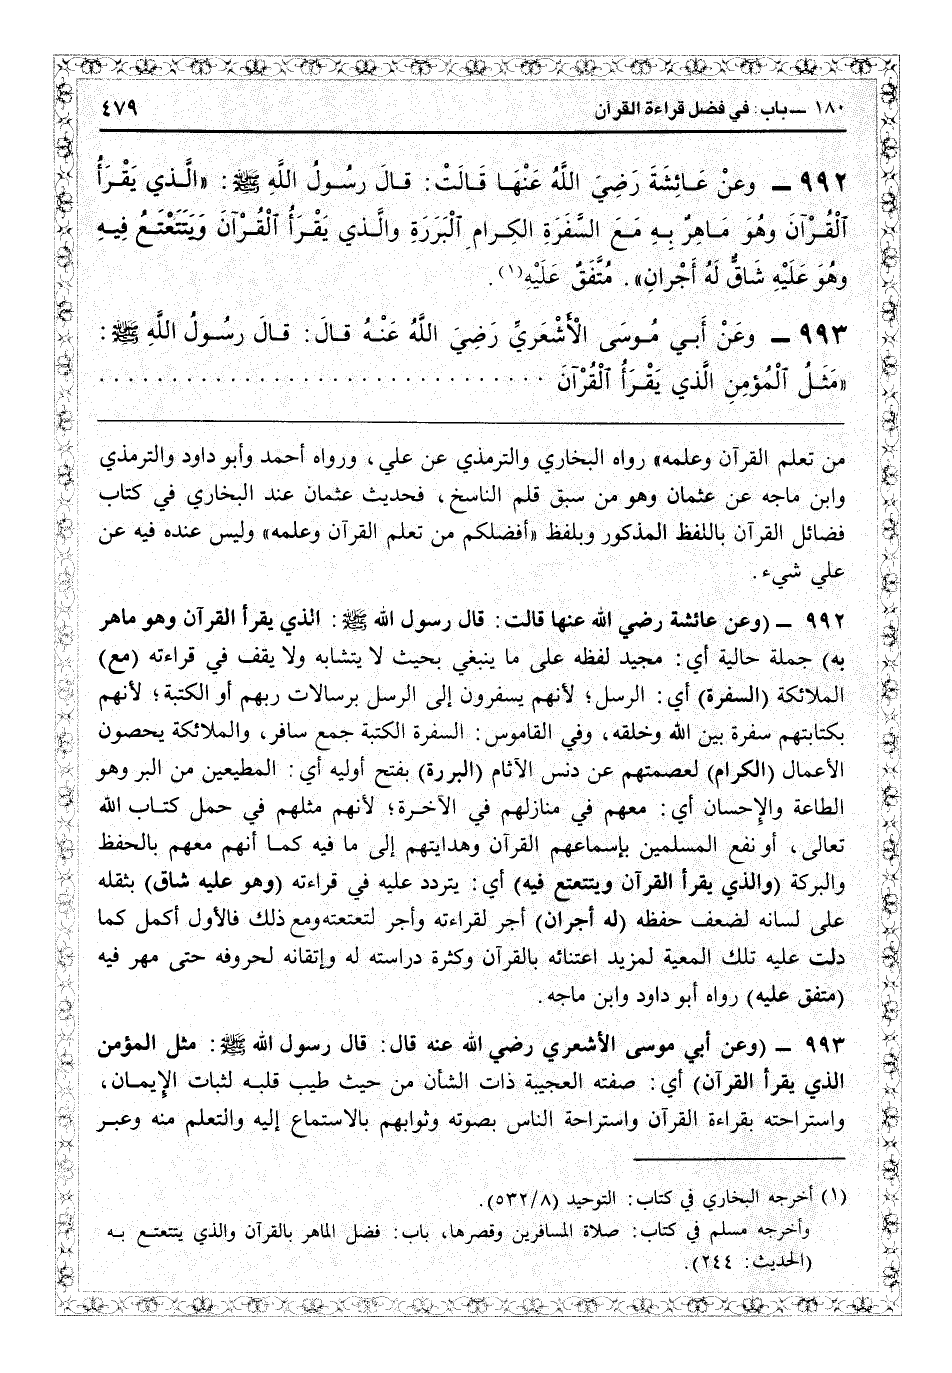 ١٨٠ ــ باب: في فضل قراءة القرآن ٤٧٩
٩٩٢ ــ وعنْ عَائِشَةَ رَضِيَ اللَّهُ عَنْهَا قَالَتْ: قالَ رسُولُ اللَّهِ ﷺ: «الَّذي يَقْرَأُ
ٱلْقُرْآنَ وهُوَ مَاهِرٌ بِهِ مَعَ السَّفَرَةِ الكِرامِ ٱلْبَرَرَةِ والَّذي يَقْرَأُ ٱلْقُرْآنَ وَيَتَتَعْتَعُ فِيهِ
وهُوَ عَلَيْهِ شَاقٌّ لَهُ أَجْرانِ». مُتَّفَقٌ عَلَيْهِ(١).
٩٩٣ ــ وعَنْ أَبي مُوسَى الْأَشْعَرِيِّ رَضِيَ اللَّهُ عَنْهُ قالَ: قالَ رسُولُ اللَّهِ ﷺ:
«مَثَلُ ٱلْمُؤمِنِ الَّذي يَقْرَأُ ٱلْقُرْآنَ . . . . . . . . . . . . . . . . . . . . . . . . . . . . . . . .
من تعلم القرآن وعلمه» رواه البخاري والترمذي عن علي، ورواه أحمد وأبو داود والترمذي
وابن ماجه عن عثمان وهو من سبق قلم الناسخ، فحديث عثمان عند البخاري في كتاب
فضائل القرآن باللفظ المذكور وبلفظ «أفضلكم من تعلم القرآن وعلمه» وليس عنده فيه عن
علي شيء.
٩٩٢ ــ (وعن عائشة رضي الله عنها قالت: قال رسول الله ﷺ: الذي يقرأ القرآن وهو ماهر
به) جملة حالية أي: مجيد لفظه على ما ينبغي بحيث لا يتشابه ولا يقف في قراءته (مع)
الملائكة (السفرة) أي: الرسل؛ لأنهم يسفرون إلى الرسل برسالات ربهم أو الكتبة؛ لأنهم
بكتابتهم سفرة بين الله وخلقه، وفي القاموس: السفرة الكتبة جمع سافر، والملائكة يحصون
الأعمال (الكرام) لعصمتهم عن دنس الآثام (البررة) بفتح أوليه أي: المطيعين من البر وهو
الطاعة والإحسان أي: معهم في منازلهم في الآخرة؛ لأنهم مثلهم في حمل كتاب الله
تعالى، أو نفع المسلمين بإسماعهم القرآن وهدايتهم إلى ما فيه كما أنهم معهم بالحفظ
والبركة (والذي يقرأ القرآن ويتتعتع فيه) أي: يتردد عليه في قراءته (وهو عليه شاق) بثقله
على لسانه لضعف حفظه (له أجران) أجر لقراءته وأجر لتعتعته ومع ذلك فالأول أكمل كما
دلت عليه تلك المعية لمزيد اعتنائه بالقرآن وكثرة دراسته له وإتقانه لحروفه حتى مهر فيه
(متفق عليه) رواه أبو داود وابن ماجه.
٩٩٣ ــ (وعن أبي موسى الأشعري رضي الله عنه قال: قال رسول الله ﷺ: مثل المؤمن
الذي يقرأ القرآن) أي: صفته العجيبة ذات الشأن من حيث طيب قلبه لثبات الإيمان،
واستراحته بقراءة القرآن واستراحة الناس بصوته وثوابهم بالاستماع إليه والتعلم منه وعبر
(١) أخرجه البخاري في كتاب: التوحيد (٥٣٢/٨).
وأخرجه مسلم في كتاب: صلاة المسافرين وقصرها، باب: فضل الماهر بالقرآن والذي يتتعتع به
(الحديث: ٢٤٤).